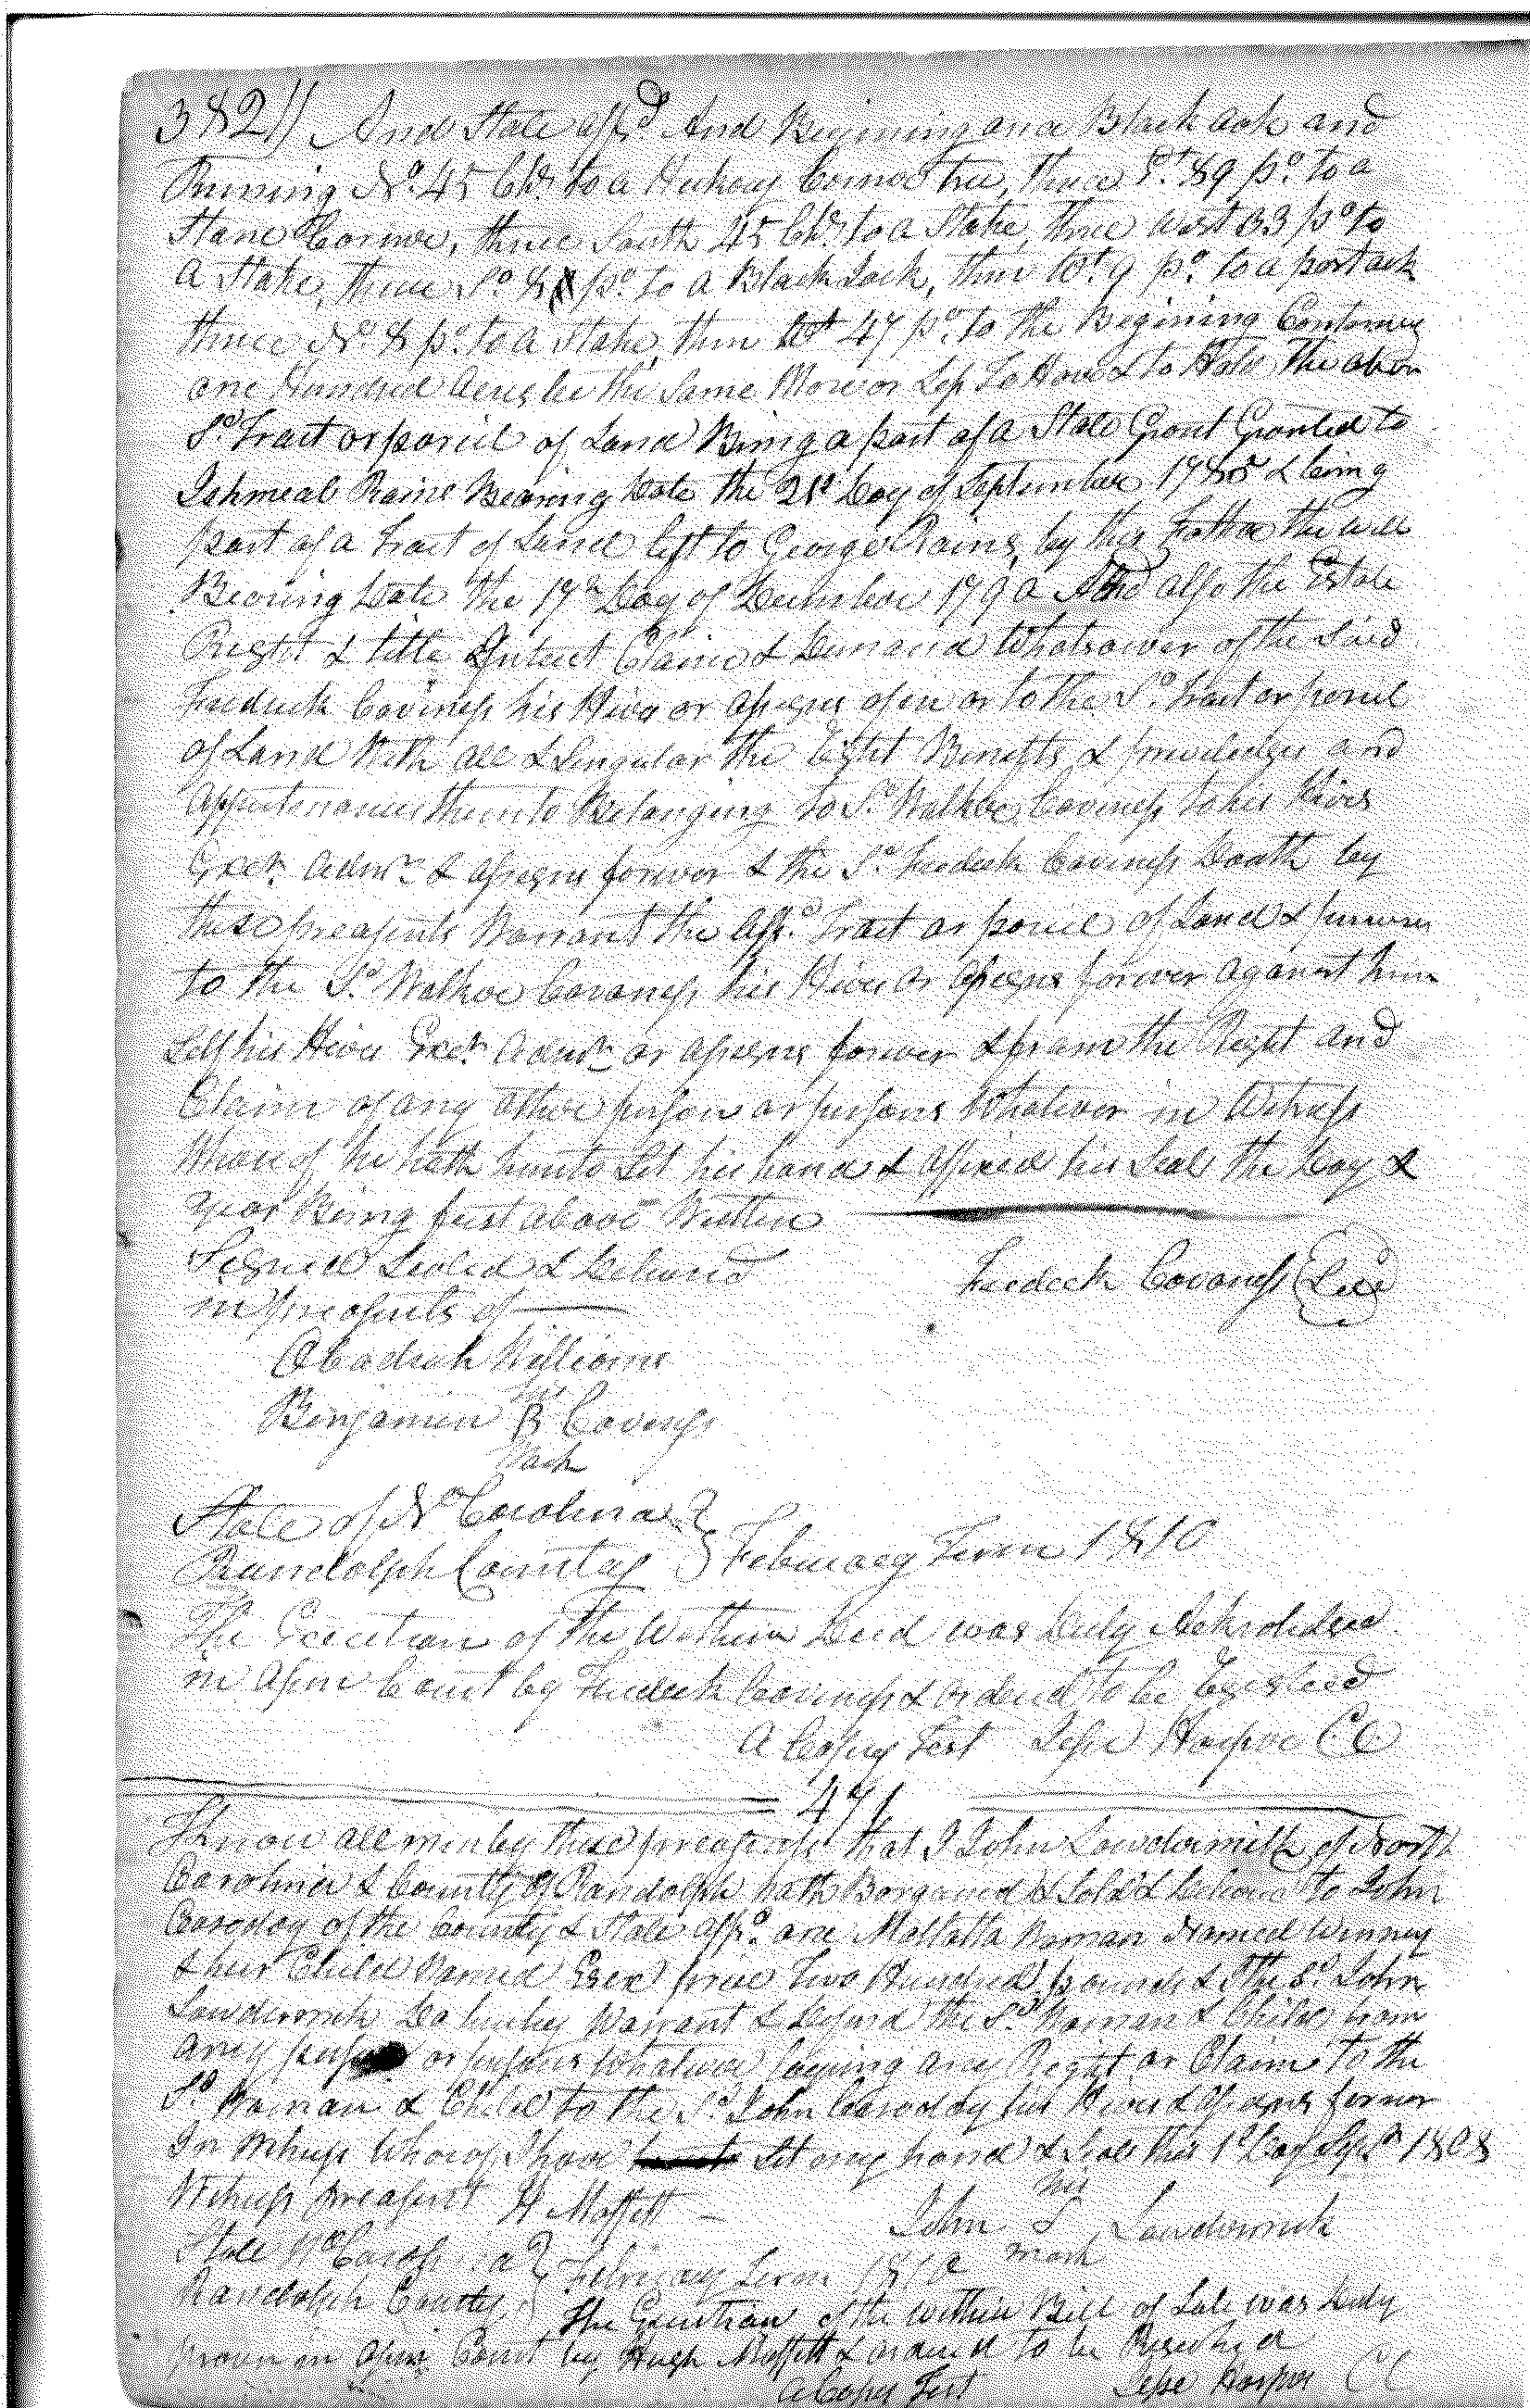 382// And State affd. And Begining on a Black oak and
Runing No. 45 Chs. to a Hickory Corner tree, thence Et. 89 po. to a
Stone Corner, thence South 45 Chs. to a Stake, thence West 33 po to
A Stake, thence So. 8 po. to a Black Jack, then Wt. 9 po. to a post oak
thence No. 8 po. to a Stake, then Wt 47 po. to the Begining Containing
one Hundred Acres be the Same More or Less To Have & to Hold the above
Sd. Tract or parcil of Land Being a part of a State Grant Granted to
Ishmeal Rains Bearing Date the 21st Day of September 1785 & being
part of a Tract of Land left to George Rains by his Father the will
Bearing Date the 17th Day of December 1790 And also the Estate
Right & title Intrest Claim & Demand Whatsoever of the Said
Fredrick Caviness his Hirs or Assigns of in or to the Sd. Tract or parcil
of Land With all & Singular the Right Benifits & priviledges and
Appurtenances thereunto Belonging to Sd. Walker Caviness to his Hires
Exers. Admrs. & Assigns forever & the Sd. Fredrick Caviness Doath by
these preasents Warrant the Affd. Tract or parcil of Land &
to the Sd. Walker Cavaness his Hires or Assigns forever against him
Self his Hires Exers. Admrs. or Assigns forever & from the Right and
Claim of any other person or persons Whatever in Witness
Whareof he hath hereunto Set his hand & Affixed his Seal the Day &
year Being first above Written
Signed Sealed & Delivered
in preasents of
Fredeck Cavaness Seal
Obadiah Williams
Benjamin his B Caviness
Mark
State of No. Carolina
Randolph County } February Term 1810
The Execution of the Within Deed was Duly
in Open Court by Fredeck Caviness & ordered to be
A Copy Test Jesse Harper C.C.
471
Know all men by these preasents that I John Lowdermilk of North
Carolina & County of Randolph hath Bargained & Sold & Delivered to John
of the County & State affd. one Mallatta Woman Named Winney
& hur Child Named price Two Hundred pounds & the Sd. John
Lowdermilk Do hereby Warrant & Defend the Sd. Woman & Child from
any person or persons Whatever laying any Right or Claim to the
Sd. Woman & Child to the Sd. John his Hires & Assigns forever
In Witness Whareof I have Set my hand & Seal this 1st Day Sept. 1808
Witness preasent H Moffett
his
John L Lowdermilk
mark
State No Carolina
Randolph County } February Term 1810
The Execution of the within Bill of Sale was Duly
proven in Open Court by Hugh Moffett & ordered to be
A Copy Test Jesse Harper CC